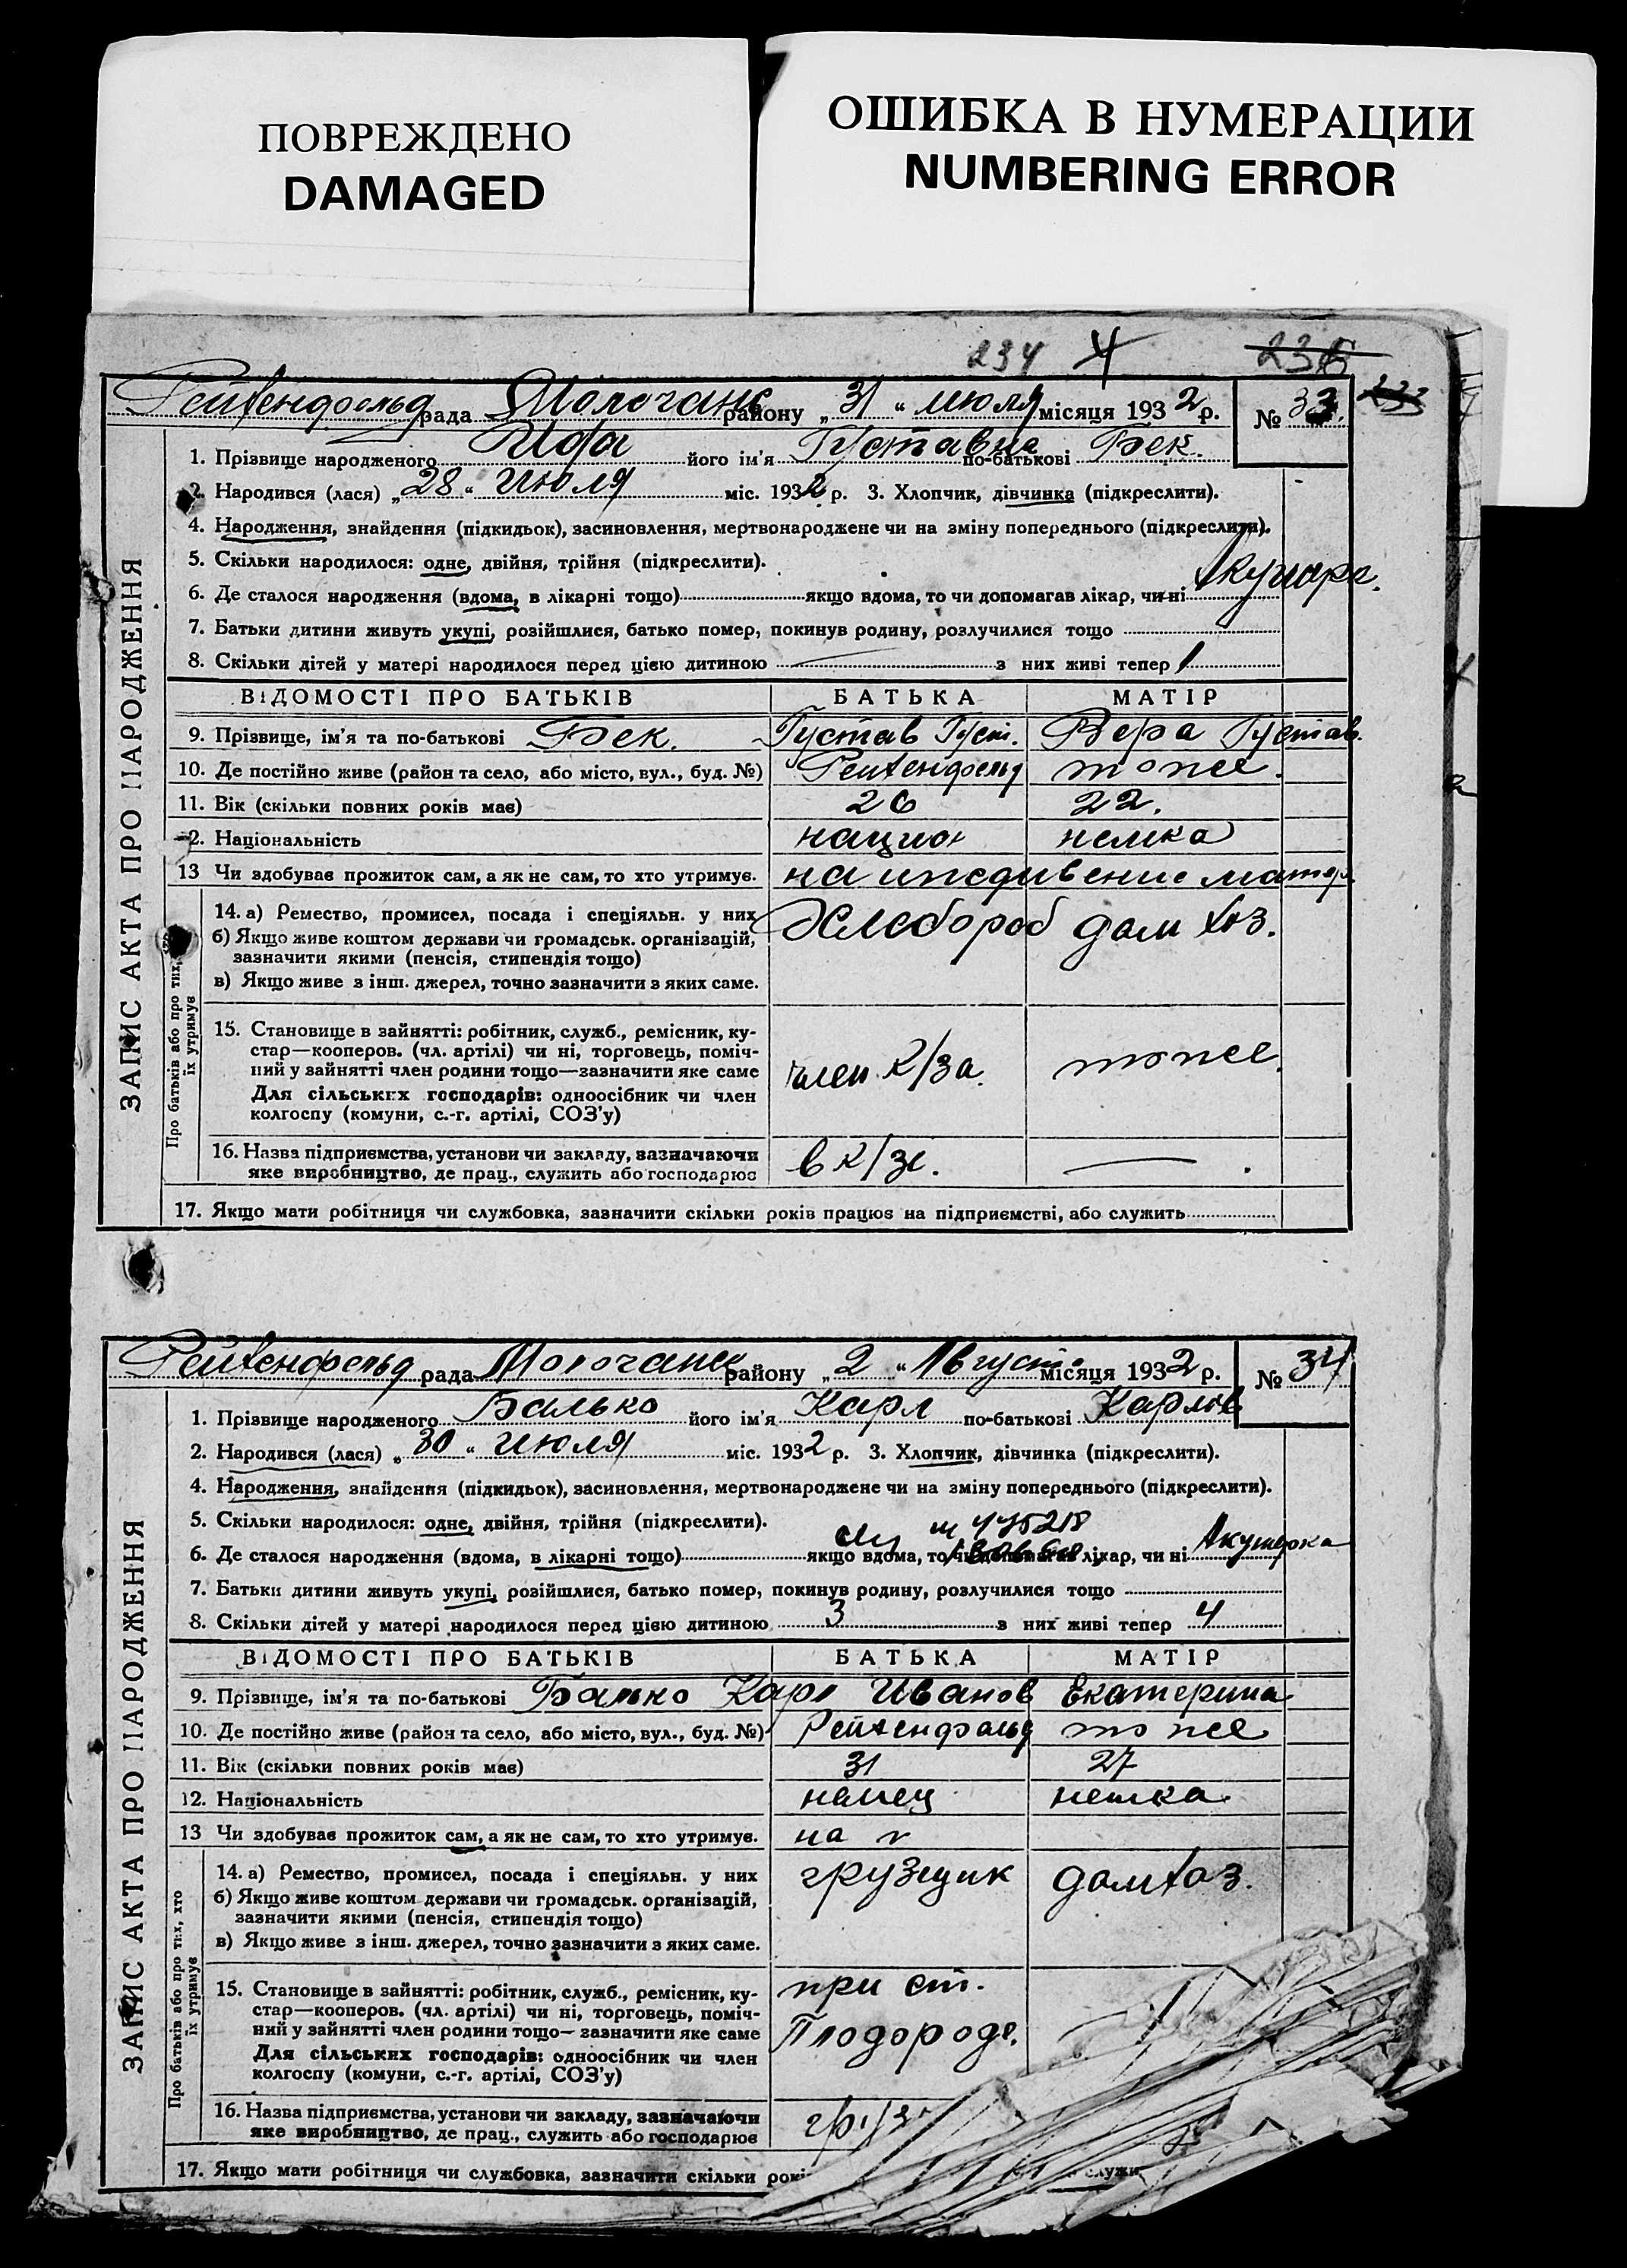 ПОВРЕЖДЕНО
DAMAGED
ОШИБКА В НУМЕРАЦИИ
NUMBERING ERROR
234 4
Рейхенфельд рада Молочанс району „31“ июля місяця 1932 р. № 33.
1. Прізвище народженого його ім'я Густавна по-батькові Бек.
2. Народився (лася) „28“ Июля міс. 1932 р. 3. Хлопчик, дівчинка (підкреслити).
4. Народження, знайдення (підкидьок), засиновлення, мертвонароджене чи на зміну попереднього (підкреслити).
5. Скільки народилося: одне, двійня, трійня (підкреслити).
6. Де сталося народження (вдома, в лікарні тощо) якщо вдома, то чи допомагав лікар, чи ні Акушерк.
7. Батьки дитини живуть укупі, розійшлися, батько помер, покинув родину, розлучилися тощо
8. Скільки дітей у матері народилося перед цією дитиною — з них живі тепер 1
ЗАПИС АКТА ПРО НАРОДЖЕННЯ
ВІДОМОСТІ ПРО БАТЬКІВ БАТЬКА МАТІР
9. Прізвище, ім'я та по-батькові Бек. Густав Густ. Вера Густав.
10. Де постійно живе (район та село, або місто, вул., буд. №) Рейхенфельд тоже.
11. Вік (скільки повних років має) 26 22.
12. Національність национ немка
13 Чи здобував прожиток сам, а як не сам, то хто утримує. на иждивение матер.
Про батьків або про тих, їх утримує
14. а) Ремество, промисел, посада і спеціяльн. у них Хлебороб дом хоз.
б) Якщо живе коштом держави чи громадськ. організацій,
зазначити якими (пенсія, стипендія тощо)
в) Якщо живе з інш. джерел, точно зазначити з яких саме.
15. Становище в зайнятті: робітник, служб., ремісник, ку-
стар—кооперов. (чл. артілі) чи ні, торговець, поміч-
ний у зайнятті член родини тощо—зазначити яке саме член к/за. тоже.
Для сільських господарів: одноосібник чи член
колгоспу (комуни, с.-г. артілі, СОЗ'у)
16. Назва підприємства, установи чи закладу, зазначаючи
яке виробництво, де прац., служить або господарює в к/зе. —.
17. Якщо мати робітниця чи службовка, зазначити скільки років працює на підприємстві, або служить
Рейхенфельд рада Молочанск району „2“ Август місяця 1932 р. № 34
1. Прізвище народженого Балько його ім'я Карл по-батькові Карлов
2. Народився (лася) „30“ Июля міс. 1932 р. 3. Хлопчик, дівчинка (підкреслити).
4. Народження, знайдення (підкидьок), засиновлення, мертвонароджене чи на зміну попереднього (підкреслити).
5. Скільки народилося: одне, двійня, трійня (підкреслити).
6. Де сталося народження (вдома, в лікарні тощо) якщо вдома, то чи допомагав лікар, чи ні Акушерка
7. Батьки дитини живуть укупі, розійшлися, батько помер, покинув родину, розлучилися тощо
8. Скільки дітей у матері народилося перед цією дитиною 3 з них живі тепер 4
ЗАПИС АКТА ПРО НАРОДЖЕННЯ
ВІДОМОСТІ ПРО БАТЬКІВ БАТЬКА МАТІР
9. Прізвище, ім'я та по-батькові Балько Карл Иванов Екатерина
10. Де постійно живе (район та село, або місто, вул., буд. №) Рейхенфельд тоже
11. Вік (скільки повних років має) 31 27
12. Національність немец немка
13 Чи здобував прожиток сам, а як не сам, то хто утримує. на
Про батьків або про тих, хто їх утримує
14. а) Ремество, промисел, посада і спеціяльн. у них грузщик домхоз.
б) Якщо живе коштом держави чи громадськ. організацій,
зазначити якими (пенсія, стипендія тощо)
в) Якщо живе з інш. джерел, точно зазначити з яких саме.
15. Становище в зайнятті: робітник, служб., ремісник, ку- при ст.
стар—кооперов. (чл. артілі) чи ні, торговець, поміч-
ний у зайнятті член родини тощо—зазначити яке саме Плодород.
Для сільських господарів: одноосібник чи член
колгоспу (комуни, с.-г. артілі, СОЗ'у)
16. Назва підприємства, установи чи закладу, зазначаючи
яке виробництво, де прац., служить або господарює
17. Якщо мати робітниця чи службовка, зазначити скільки